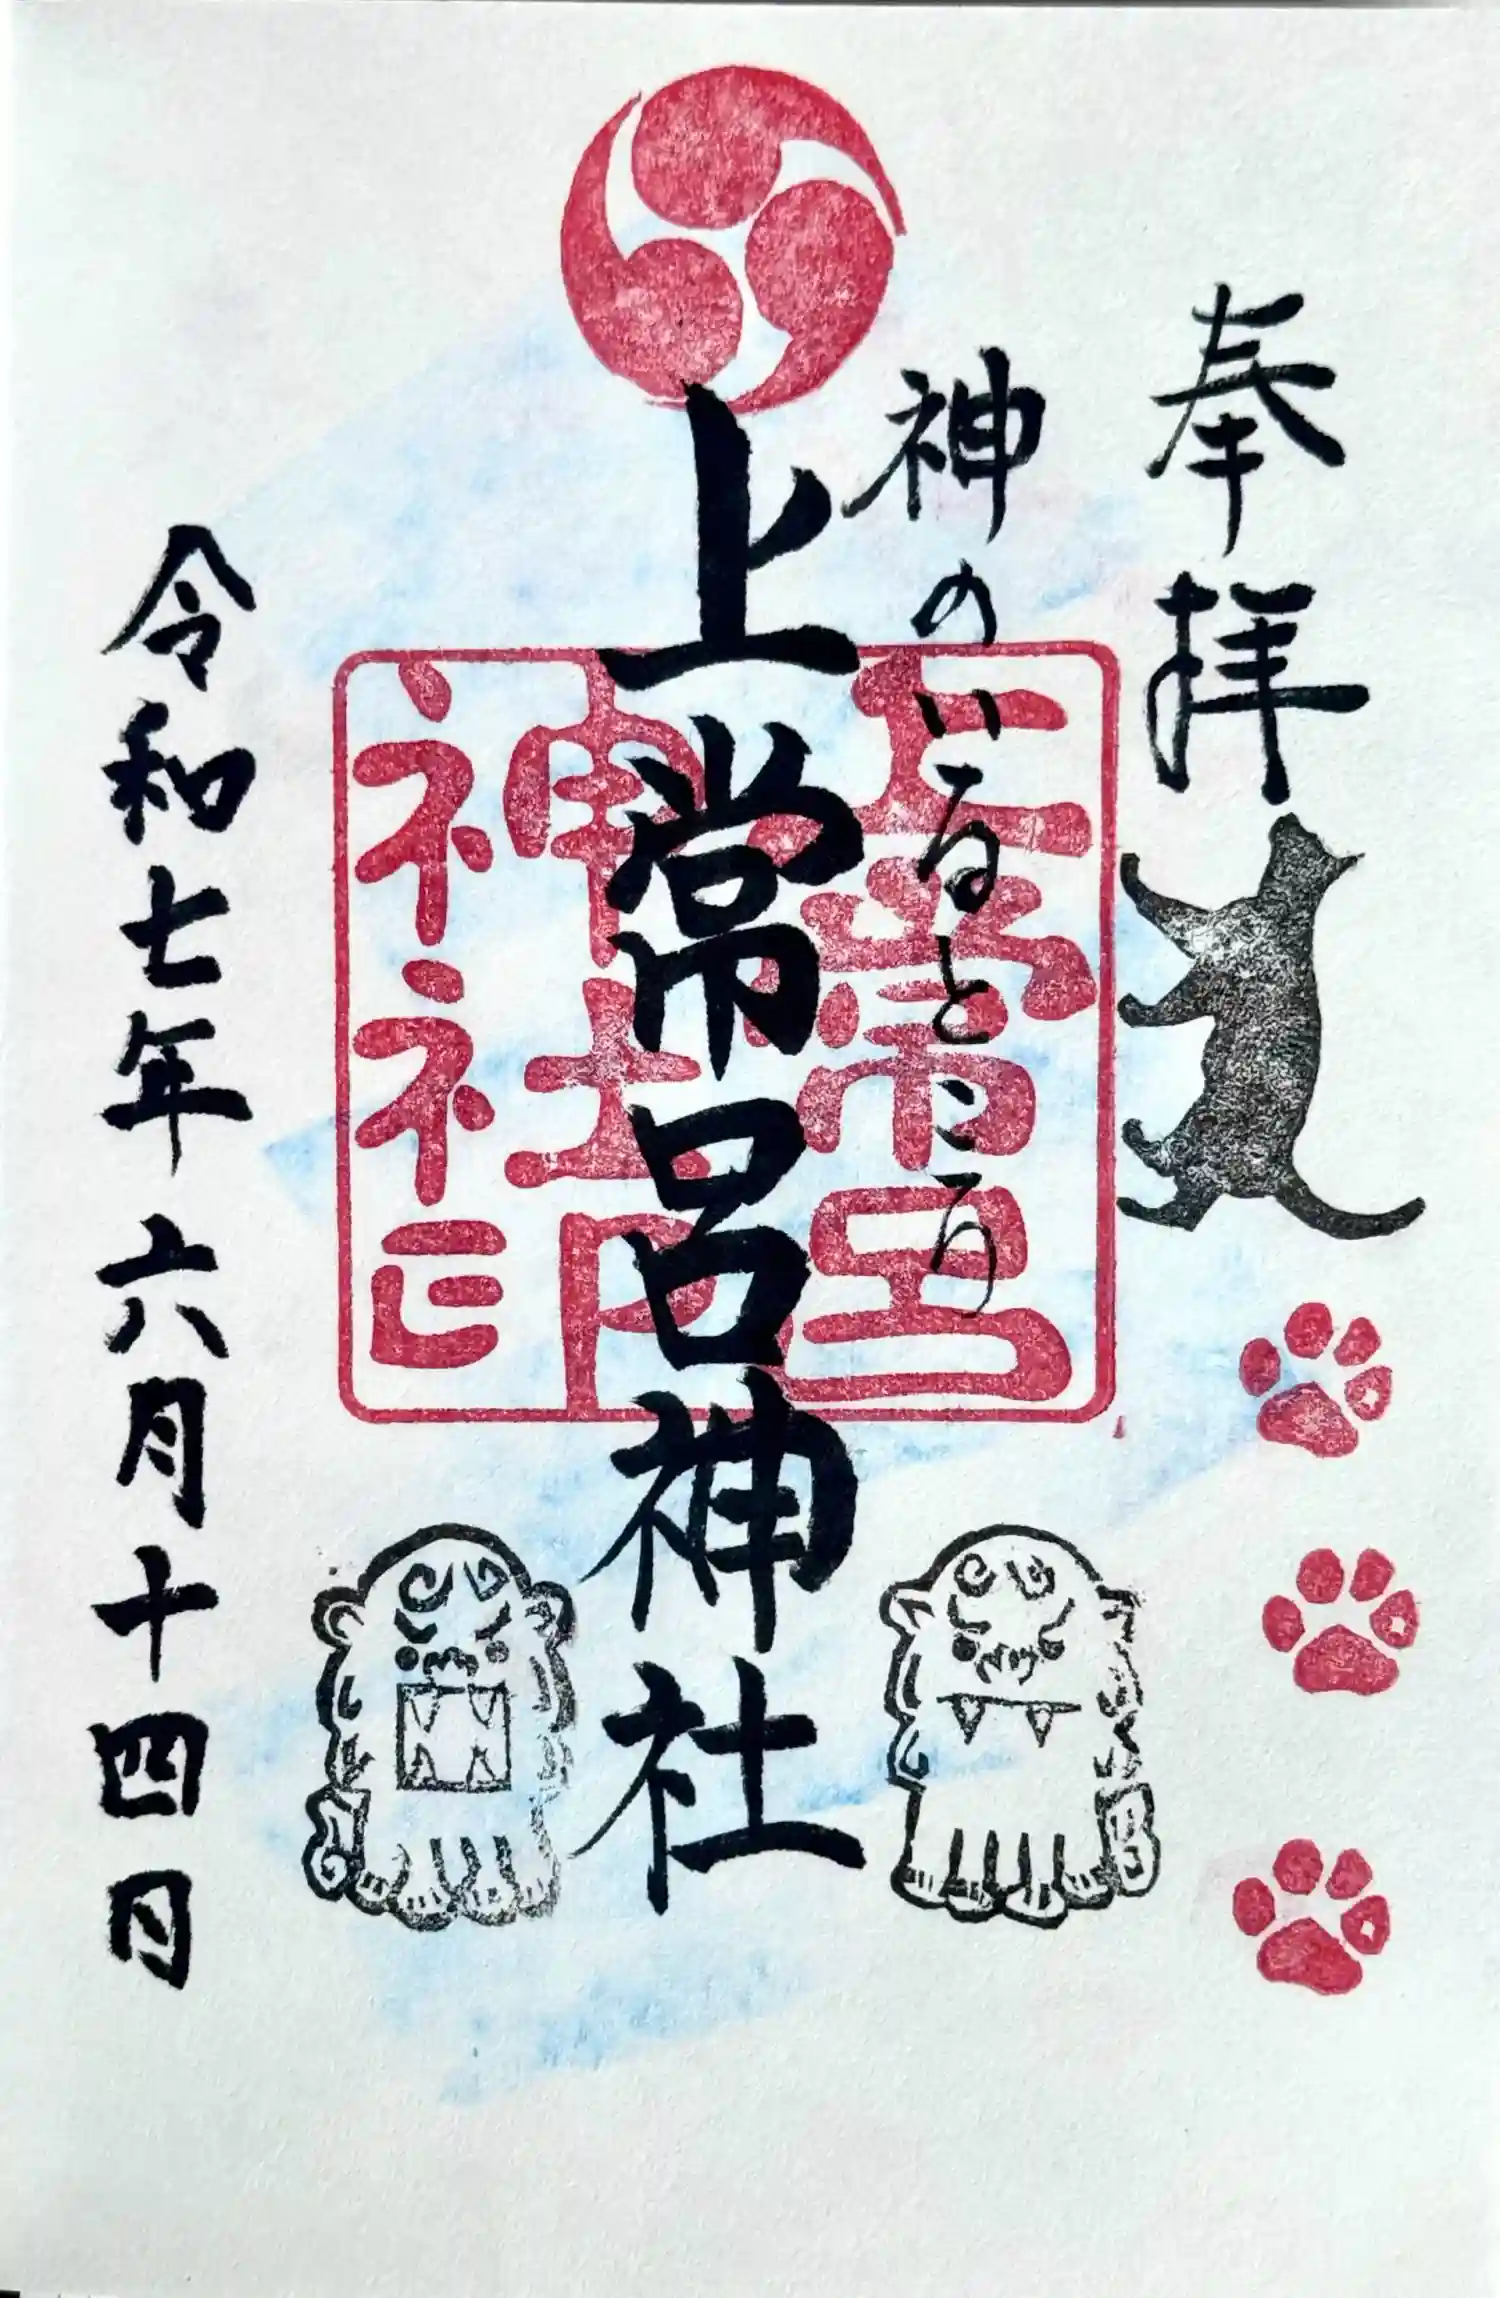 奉拝
神のいるところ
上常呂神社
上常呂
神社印
令和七年六月十四日